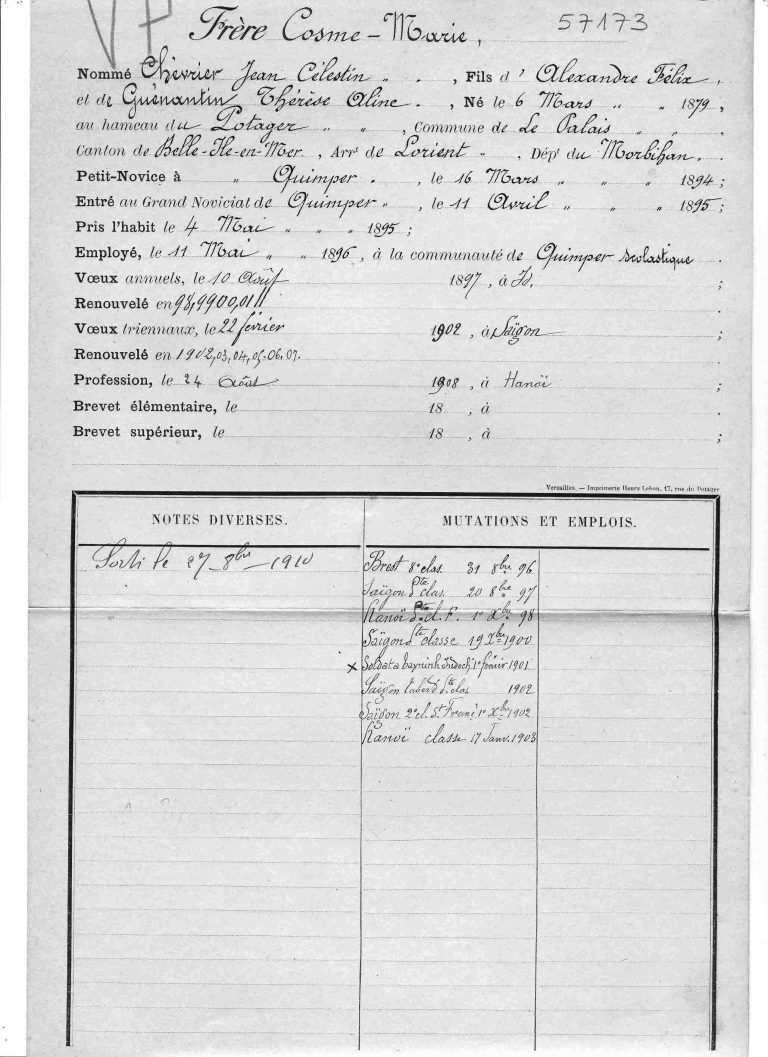 57173
Frère Cosme-Marie,
Nommé Chevrier Jean Célestin " . , Fils d' Alexandre Félix ,
et de Guénantin Thérèse Aline . , Né le 6 Mars " " 1879 ,
au hameau du Potager " " , Commune de Le Palais " " ,
Canton de Belle-Ile-en-Mer , Arrt de Lorient " , Dépt du Morbihan .
Petit-Novice à " Quimper . , le 16 Mars " " " 1894 ;
Entré au Grand Noviciat de Quimper " , le 11 Avril " " " 1895 ;
Pris l'habit le 4 Mai " " " 1895 ;
Employé, le 11 Mai " " 1896 , à la communauté de Quimper scolastique
Vœux annuels, le 10 Août 1897 , à Id. ;
Renouvelé en 98,9900,01 .
Vœux triennaux, le 22 février 1902 , à Saïgon ;
Renouvelé en 1902,03,04,05-06,07. .
Profession, le 24 Août 1908 , à Hanoï ;
Brevet élémentaire, le 18 , à .
Brevet supérieur, le 18 , à ;
Versailles. — Imprimerie Henry Lebon, 17, rue du Potager
NOTES DIVERSES.
MUTATIONS ET EMPLOIS.
Sorti le 27 8bre 1910
Brest 8e clas. 31 8bre 96
Saïgon Pte clas. 20 8bre 97
Hanoï Pte cl. F. 1er Xbre 98
Saïgon Pte classe 19 Xbre 1900
x Soldat à Tayninh Indoch 1er février 1901
Saïgon Taberd Pte clas 1902
Saïgon 2e cl. St Franç 1er Xbre 1902
Hanoï classe 17 Janv. 1903